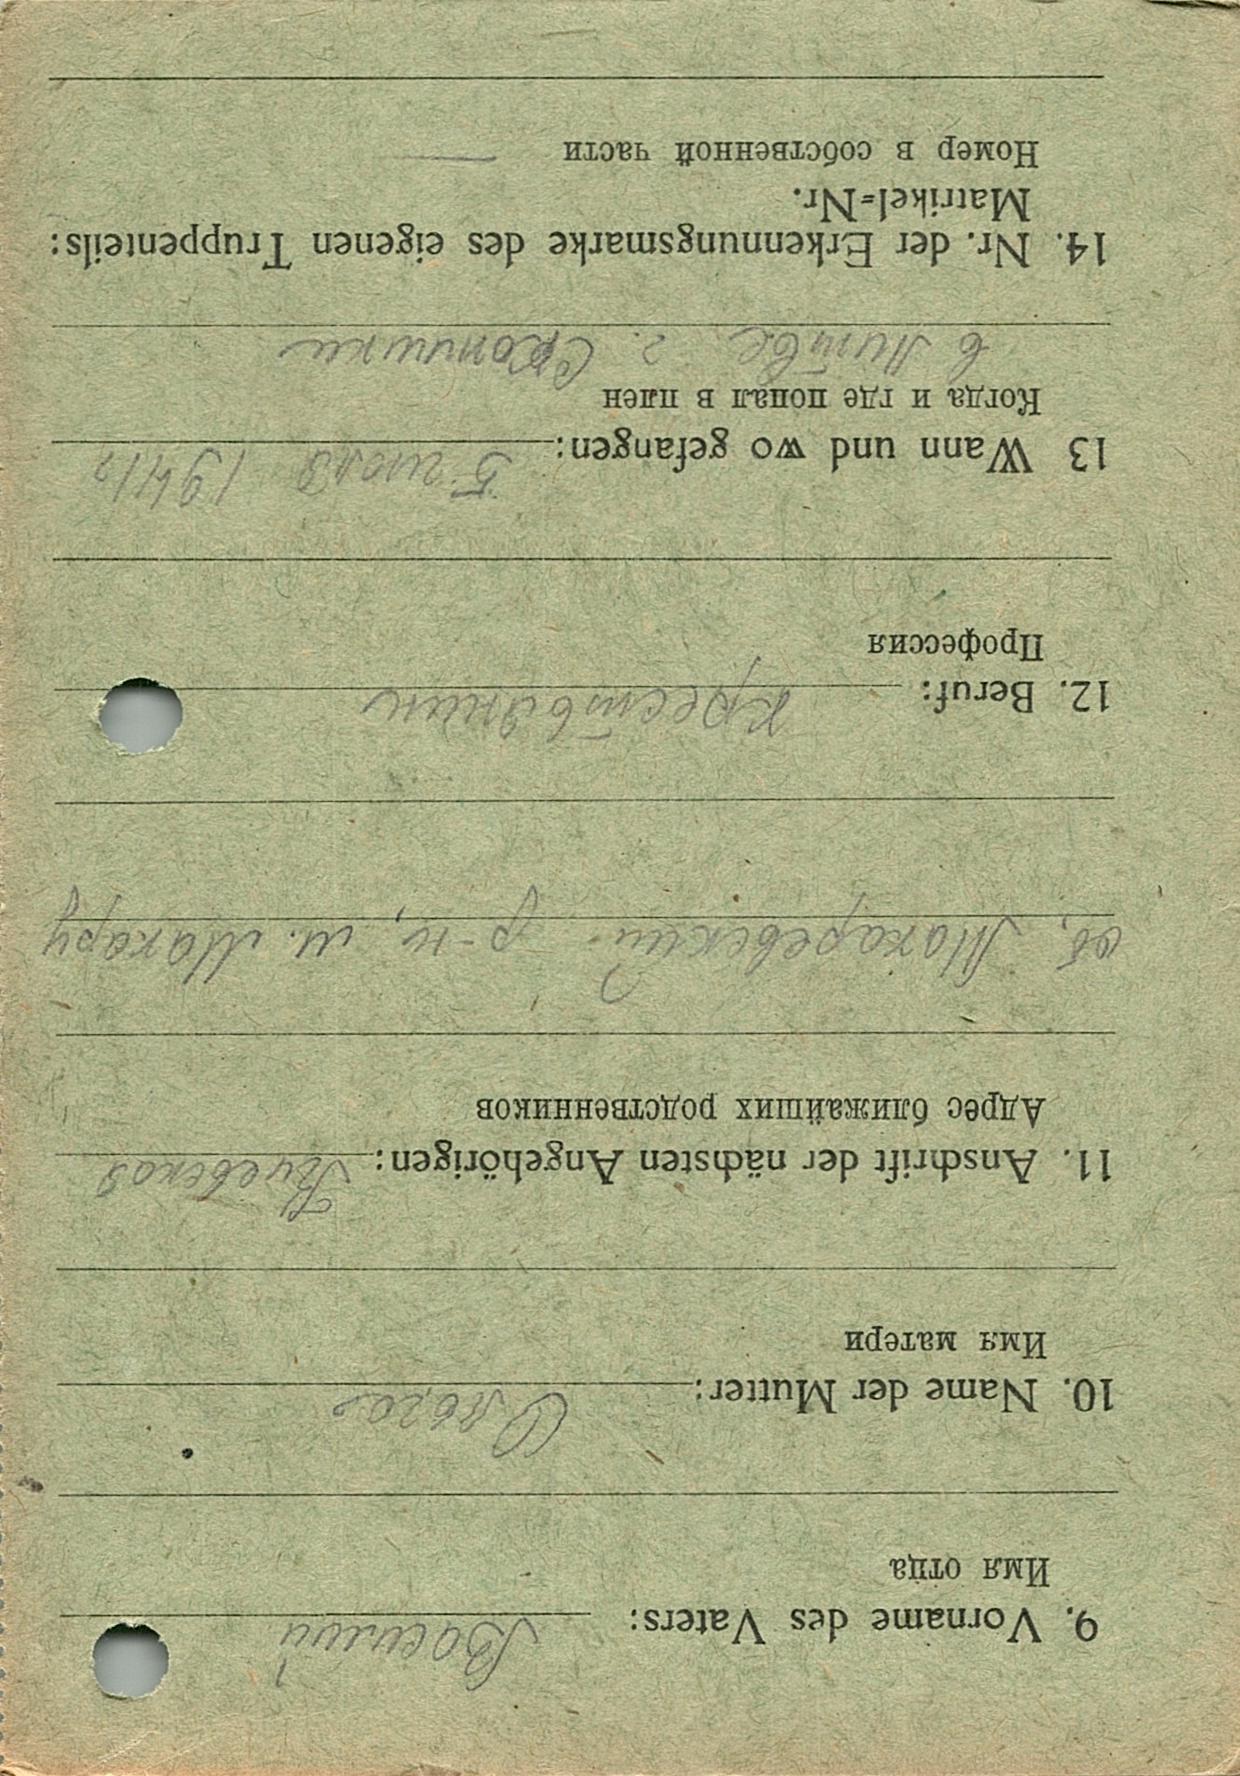 9. Vorname des Vaters: Василий
Имя отца
10. Name der Mutter: Ольга
Имя матери
11. Anschrift der nächsten Angehörigen: Киевская
Адрес ближайших родственников
об, Макаревский р-н, м. Макару
12. Beruf: крестьянин
Профессия
13 Wann und wo gefangen: 5 июля 1941г
Когда и где попал в плен
в Литве г.
14. Nr. der Erkennungsmarke des eigenen Truppenteils:
Matrikel-Nr.
Номер в собственной части —